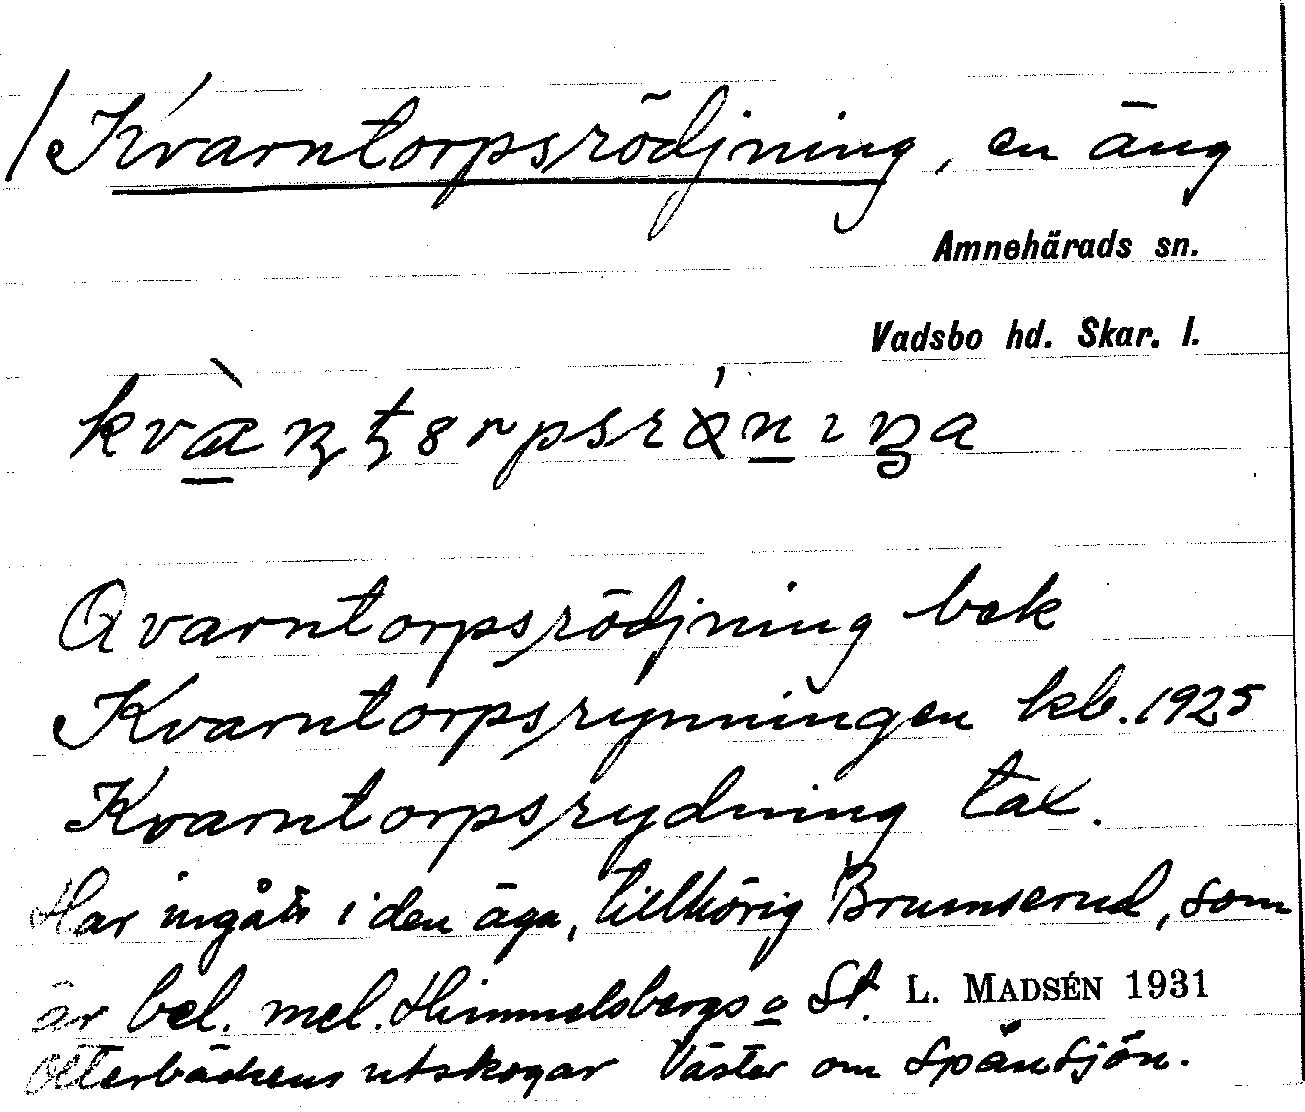 / Kvarntorpsrödjning, en äng
Amnehärads sn.
Vadsbo hd. Skar. l.
Qvarntorpsrödjning bek
Kvarntorpsrynningen kb. 1925
Kvarntorpsrydning tax.
Har ingått i den äga, tillhörig Brumserud, som
är bel. mel. Himmelsbergs o St. L. MADSÉN 1931
Otterbäckens utskogar Väster om Spånsjön.